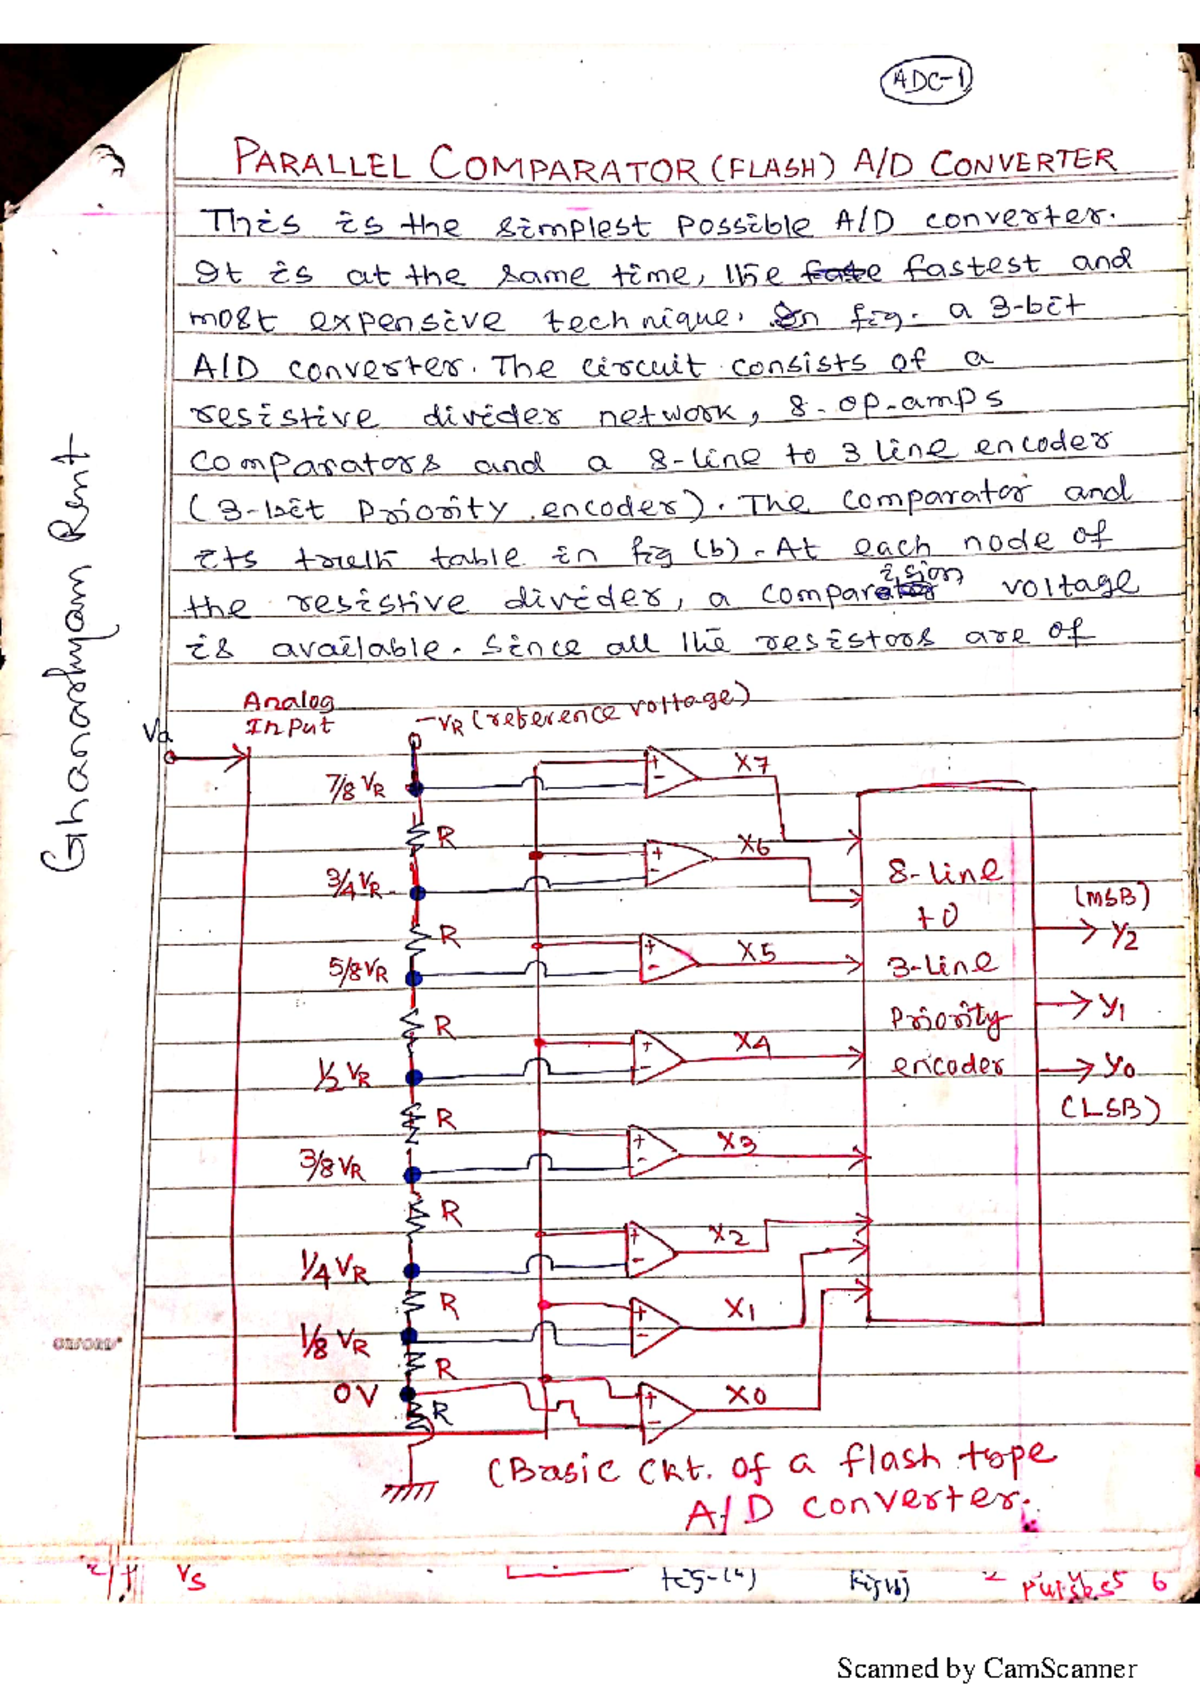 ADC-1
PARALLEL COMPARATOR (FLASH) A/D CONVERTER
This is the simplest possible A/D converter.
It is at the same time, the fastest and
most expensive technique. In fig. a 3-bit
A/D converter. The circuit consists of a
resistive divider network, 8-op-amps
comparators and a 8-line to 3 line encoder
(3-bit Priority encoder). The comparator and
its truth table in fig (b). At each node of
the resistive divider, a comparision voltage
is available. Since all the resistors are of
Ghanashyam Rent
Analog
Input
Va
-VR (reference voltage)
7/8 VR
R
3/4 VR
R
5/8 VR
R
1/2 VR
R
3/8 VR
R
1/4 VR
R
1/8 VR
R
0V
R
X7
X6
X5
X4
X3
X2
X1
X0
8-line
to
3-line
Priority
encoder
(MSB)
Y2
Y1
Y0
(LSB)
(Basic Ckt. of a flash type
A/D converter.
Vs
6
Scanned by CamScanner